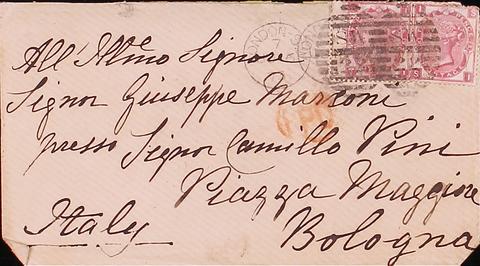 All' Illmo Signore
Signor Giuseppe Marconi
presso Signor Camillo Pini
Piazza Maggiore
Italy
Bologna
LONDON
PD